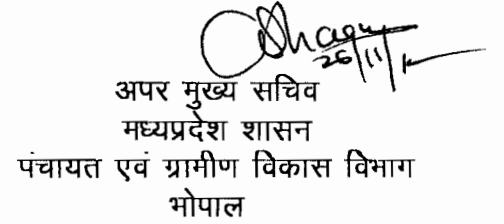 26/11/1
अपर मुख्य सचिव
मध्यप्रदेश शासन
पंचायत एवं ग्रामीण विकास विभाग
भोपाल